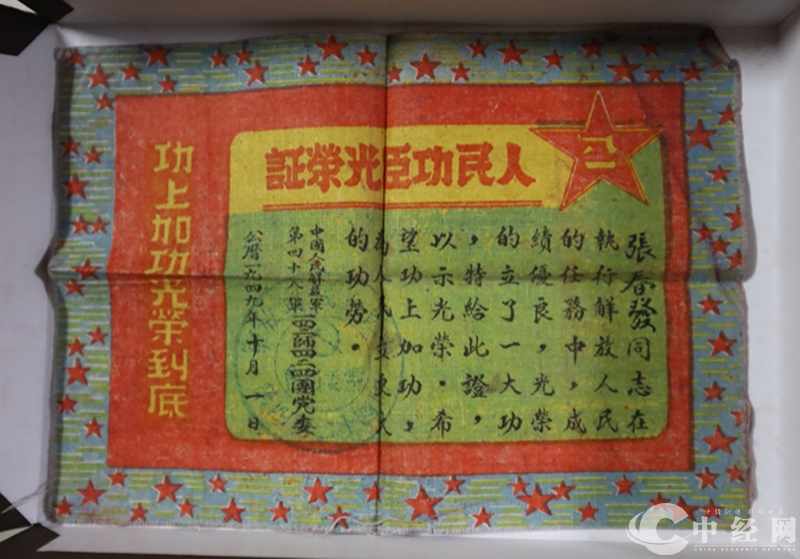 人民功臣光榮証
八一
張春發同志在
執行解放人民
的任務中,成
績優良,光榮
的立了一大功
,特給此證,
以示光榮.希
望功上加功,
為人民立更大
的功勞.
中國人民解放軍
第四十八軍一四二師四二四團党委
公曆一九四九年十月一日
功上加功光榮到底
中经网
CHINA ECONOMIC NETWORK